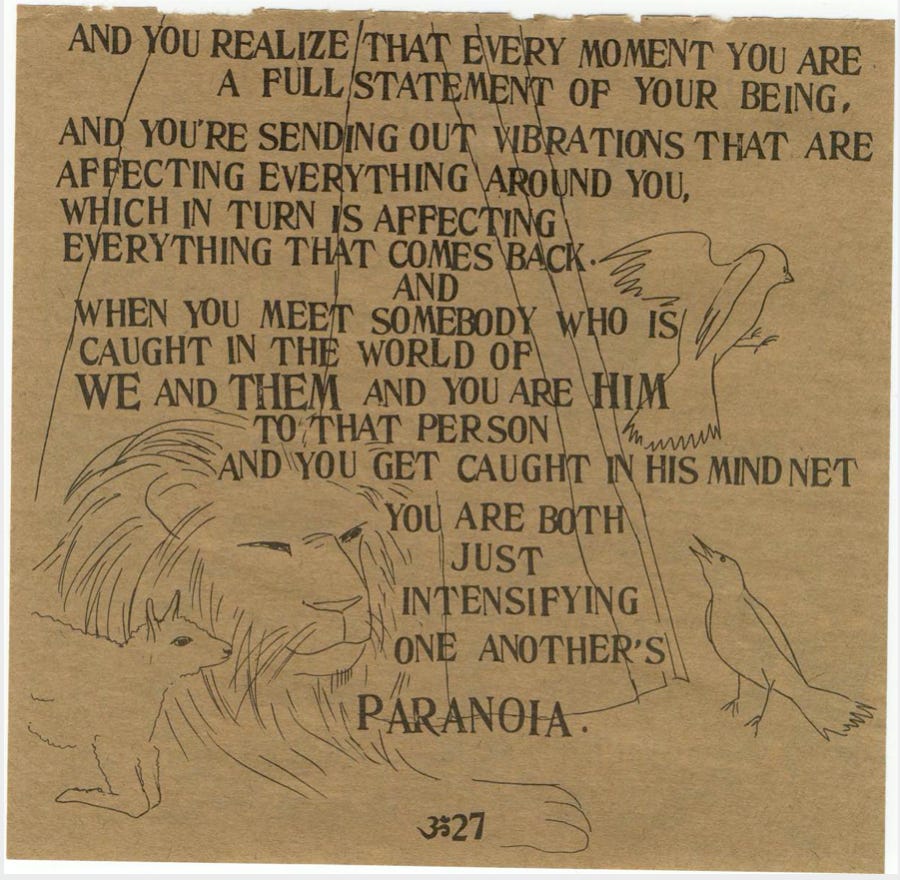 AND YOU REALIZE THAT EVERY MOMENT YOU ARE
A FULL STATEMENT OF YOUR BEING,
AND YOU'RE SENDING OUT VIBRATIONS THAT ARE
AFFECTING EVERYTHING AROUND YOU,
WHICH IN TURN IS AFFECTING
EVERYTHING THAT COMES BACK.
AND
WHEN YOU MEET SOMEBODY WHO IS
CAUGHT IN THE WORLD OF
WE AND THEM AND YOU ARE HIM
TO THAT PERSON
AND YOU GET CAUGHT IN HIS MIND NET
YOU ARE BOTH
JUST
INTENSIFYING
ONE ANOTHER'S
PARANOIA.
ॐ27